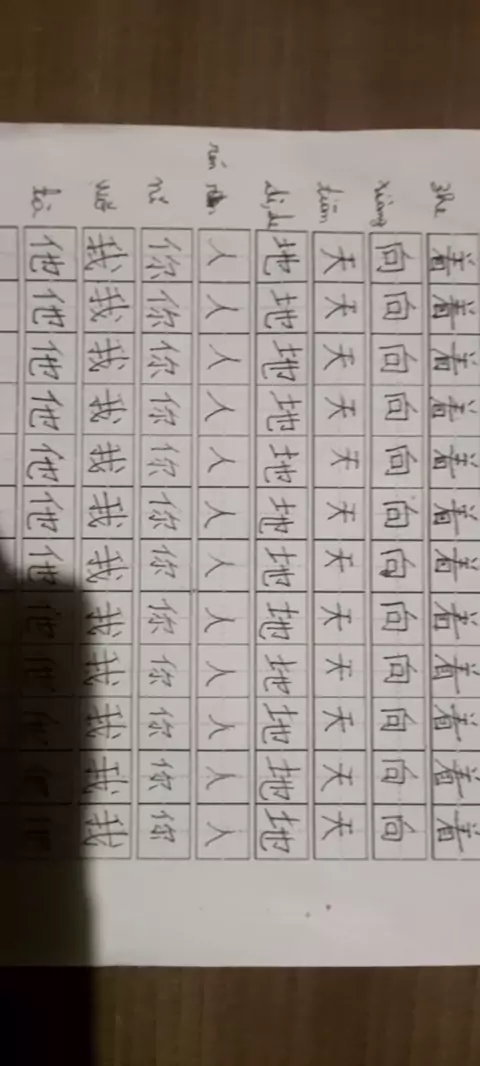 zhe 着 着 着 着 着 着 着 着 着 着 着 着
xiàng 向 向 向 向 向 向 向 向 向 向 向 向
tiān 天 天 天 天 天 天 天 天 天 天 天 天
dì, de 地 地 地 地 地 地 地 地 地 地 地 地
rén 人 人 人 人 人 人 人 人 人 人 人 人
nǐ 你 你 你 你 你 你 你 你 你 你 你 你
wǒ 我 我 我 我 我 我 我 我 我 我 我 我
tā 他 他 他 他 他 他 他 他 他 他 他 他